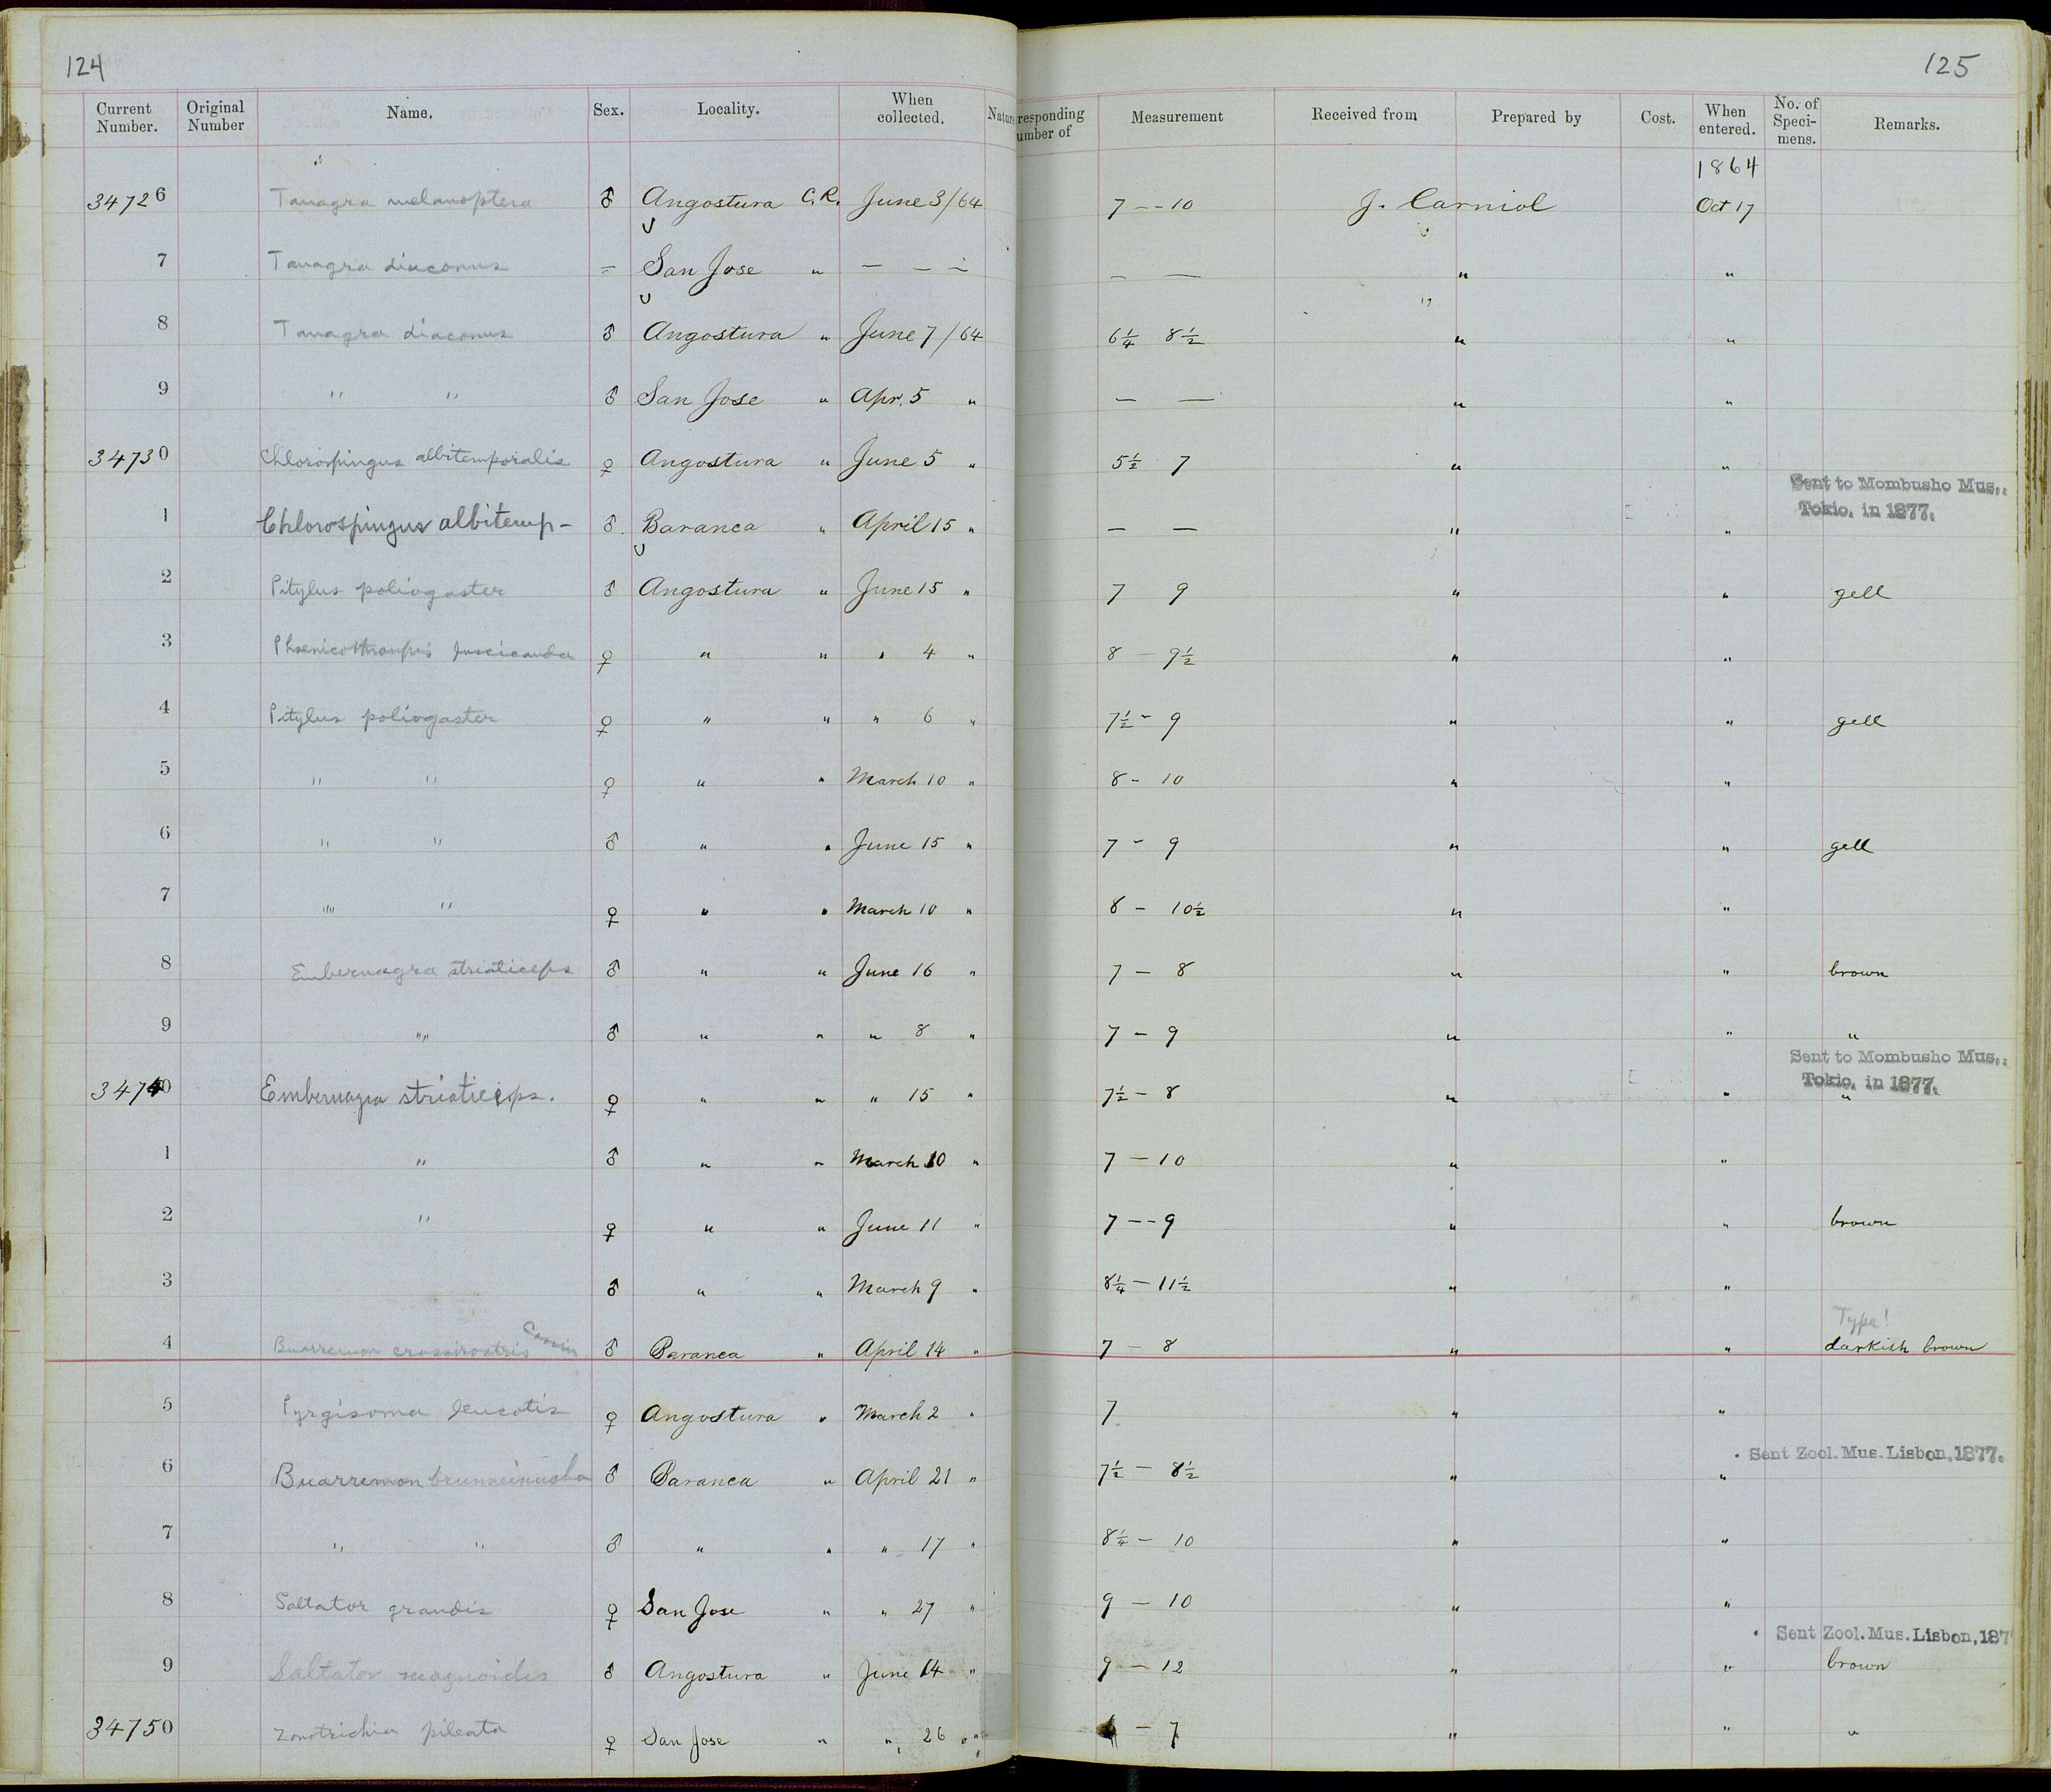 124
125
Current Number. Original Number Name. Sex. Locality. When collected. Nature responding umber of Measurement Received from Prepared by Cost. When entered. No. of Speci- mens. Remarks.
1864
34726 Tanagra melanoptera ♂ Angostura C.R. June 3/64 7 -- 10 J. Carniol Oct 17
7 Tanagra diaconus – San Jose " — — — — — " "
8 Tanagra diaconus ♂ Angostura " June 7/64 6¼ 8½ " "
9 " " ♂ San Jose " Apr. 5 " — — " "
34730 Chlorospingus albitemporalis ♀ Angostura " June 5 " 5½ 7 " "
Sent to Mombusho Mus.,
Tokio, in 1877.
1 Chlorospingus albitemp- ♂. Baranca " April 15 " — — " "
2 Pitylus poliogaster ♂ Angostura " June 15 " 7 9 " " gell
3 Phoenicothraupis fuscicauda ♀ " " " 4 " 8 — 9½ " "
4 Pitylus poliogaster ♀ " " " 6 " 7½ - 9 " " gell
5 " " ♀ " " March 10 " 8 - 10 " "
6 " " ♂ " " June 15 " 7 - 9 " " gell
7 " " ♀ " " March 10 " 8 - 10½ " "
8 Embernagra striaticeps ♂ " " June 16 " 7 — 8 " " brown
9 " " ♂ " " " 8 " 7 — 9 " " "
Sent to Mombusho Mus.,
Tokio, in 1877.
34740 Embernagra striaticeps. ♀ " " " 15 " 7½ — 8 " " "
1 " ♂ " " March 10 " 7 — 10 " "
2 " ♀ " " June 11 " 7 -- 9 " " brown
3 ♂ " " March 9 " 8¼ — 11½ " "
Type!
4 Buarremon crassirostris Cassin ♂ Baranca " April 14 " 7 — 8 " " darkish brown
5 Pyrgisoma leucotis ♀ Angostura " March 2 " 7 " "
Sent Zool. Mus. Lisbon, 1877.
6 Buarremon brunneinucha ♂ Baranca " April 21 " 7½ — 8½ " "
7 " " ♂ " " " 17 " 8¼ — 10 " "
8 Saltator grandis ♀ San Jose " " 27 " 9 — 10 " "
Sent Zool. Mus. Lisbon, 187
9 Saltator magnoides ♂ Angostura " June 14 " 9 — 12 " " brown
34750 Zonotrichia pileata ♀ San Jose " " 26 " 6 — 7 " " "